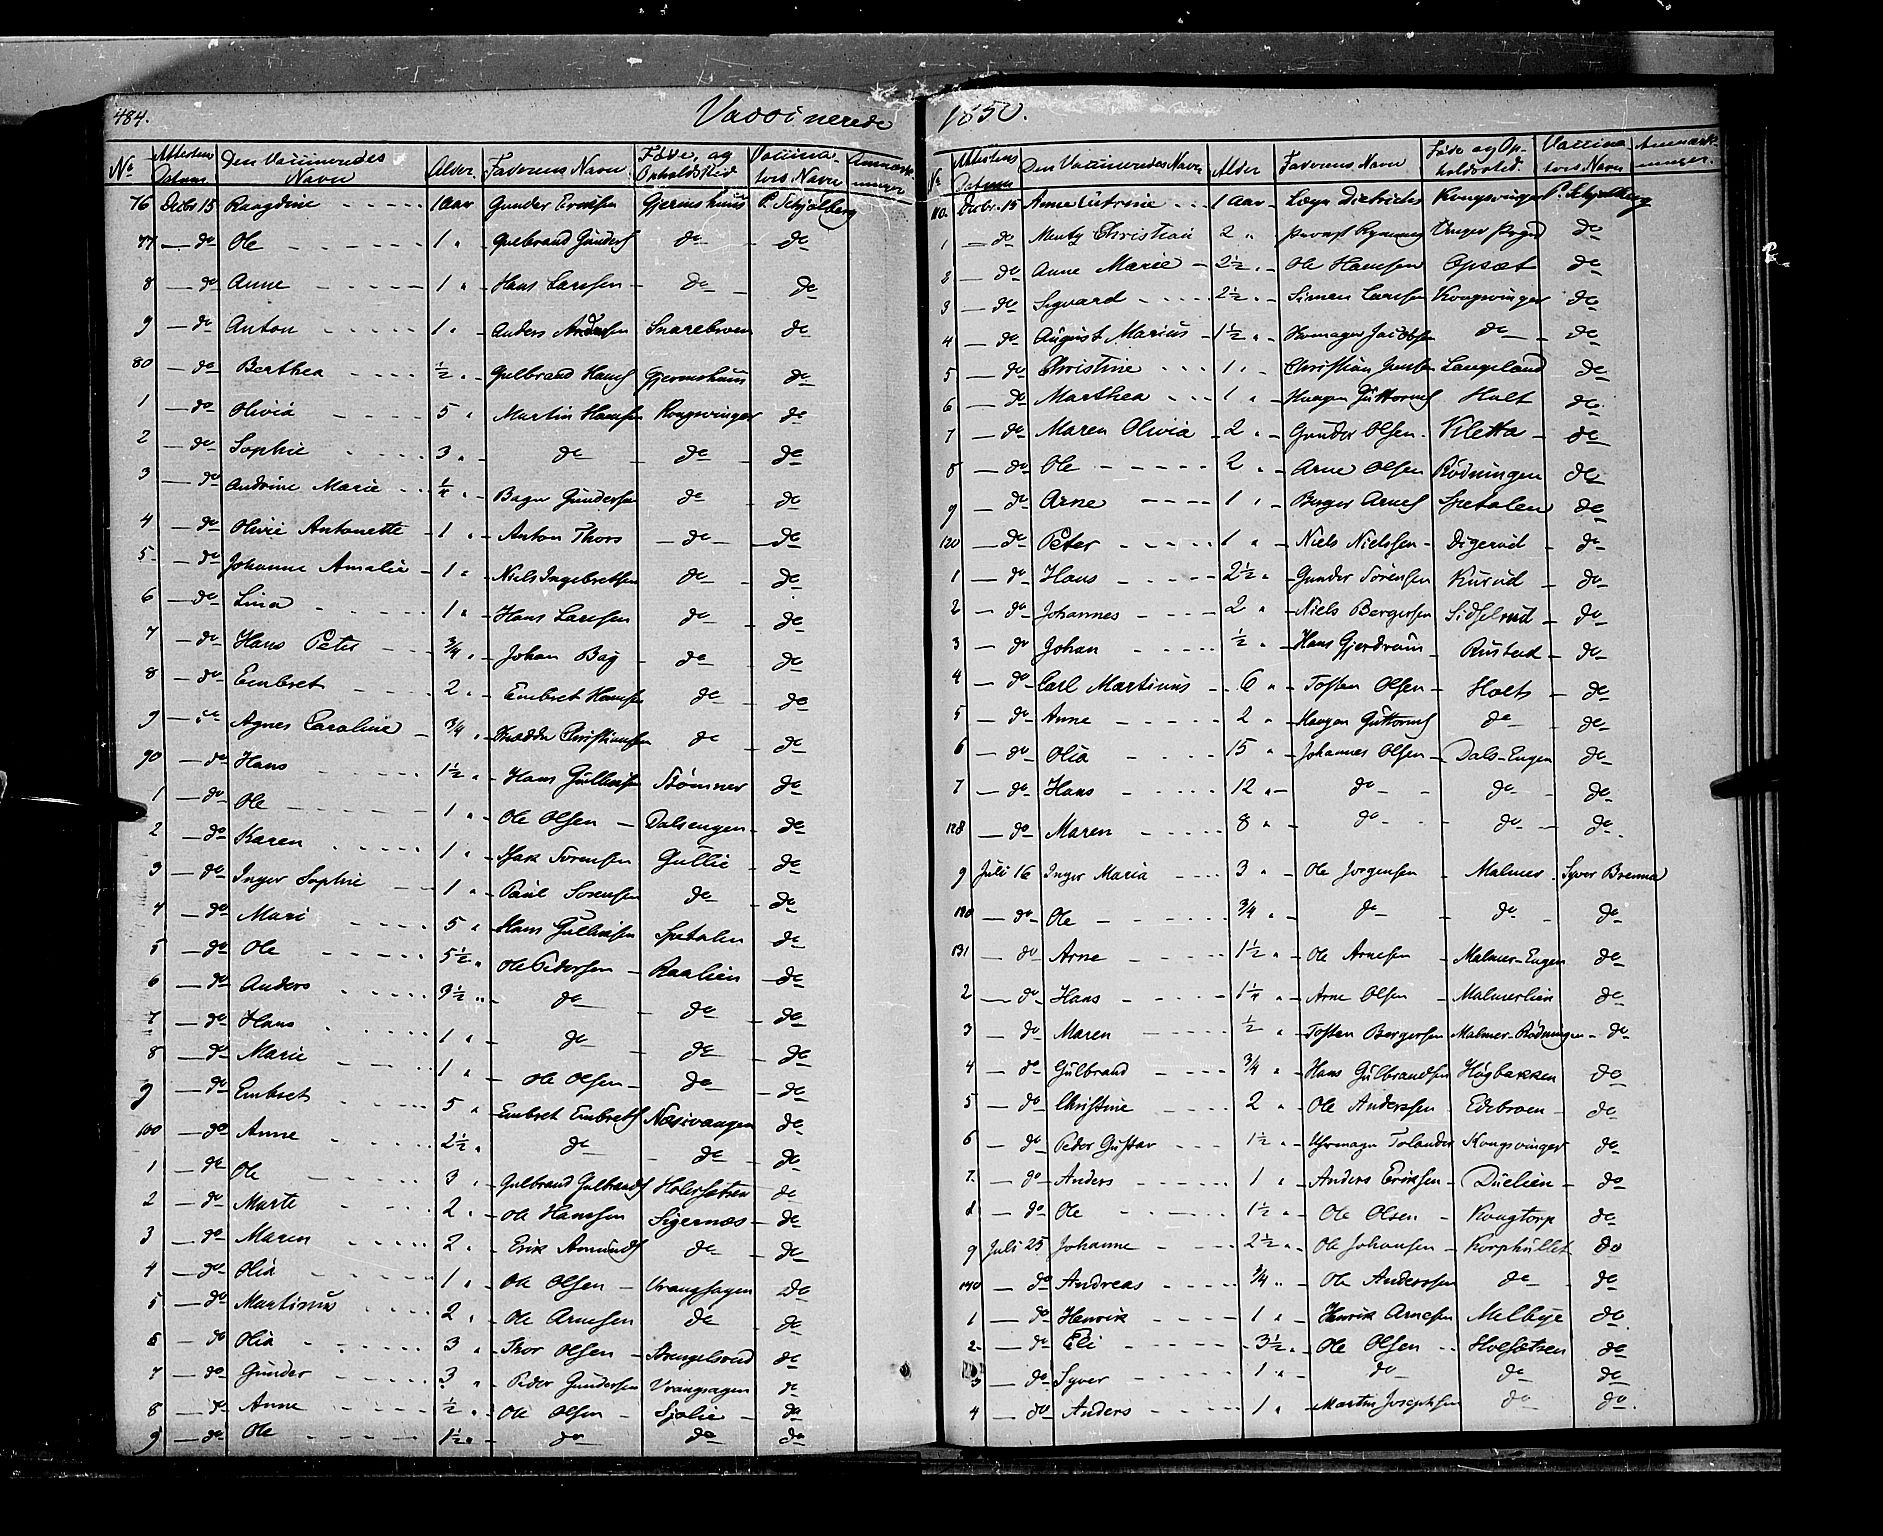 484. Vaccinerede
No Attestens Datum Den Vaccineredes Navn Alder Faderens Navn Føde, og Opholds Sted Vaccinators Navn Anmærkninger
76 Decbr 15 Raagdine 1 Aar Gunder Gjermshuus P. Schjølberg
77 — do Ole 1 " Gulbrand Gunders do do
8 — do Anne 1 " Hans Larssen do do
9 — do Anton 1 " Anders Snarebroen do
80 — do Berthea ½ " Gulbrand Hans Gjermshuus do
1 — do Olivia 5 " Martin Hanssen Kongsvinger do
2 — do Sophie 3 " do do do
3 — do Andrine Marie ¼ " Gundersen do do
4 — do Olivie Antonette 1 " Anton Thors do do
5 — do Johanne Amalie 1 " Niels Ingebretsen do do
6 — do Lina 1 " Hans Larssen do do
7 — do Hans Peter ¾ " Johan Bay do do
8 — do Embret 2 " Embret Hanssen do do
9 — do Agnes Caroline ¾ " Christiansen do do
90 — do Hans 1½ " Hans Gulliksen Stømner do
1 — do Ole 1 " Ole Olsen Dalsengen do
2 — do Karen 1 " Isak Sørensen Gullie do
3 — do Inger Sophie 1 " Paul Sørensen do do
4 — do Mari 5 " Hans Gulliksen Spetalen do
5 — do Ole 5½ " Ole Pedersen Raalien do
6 — do Anders 3½ " do do do
7 — do Hans 1 " do do do
8 — do Marie 1 " Ole Olsen do do
9 — do Embret 5 " Embret Embrets Næsvangen do
100 — do Anne 2½ " do do do
1 — do Ole 3 " Gulbrand Gulbrands Holersætren do
2 — do Marte 2 " Ole Hanssen Sigernæs do
3 — do Maren 2 " Erik Amunds do do
4 — do Olia 1 " Ole Olsen Vranghagen do
5 — do Martinus 2 " Ole Arnesen do do
6 — do Olia 3 " Thor Olsen Strengelsrud do
7 — do Gunder 3 " Peder Gundersen Vranghagen do
8 — do Anne ½ " Ole Olsen Sjølie do
9 — do Ole 1½ " do do do
1850.
No Attestens Datum Den Vaccineredes Navn Alder Faderens Navn Føde og Opholdssted. Vaccinators Navn Anmærkninger.
110. Decbr. 15 Anne Cathrine 1 Aar Dietrichs Kongsvinger P. Schjølberg
1 — do Mentz Christian 2 " Provst Rynning Vinger Prgd do
2 — do Anne Marie 2½ " Ole Hanssen Opsæt do
3 — do Sigvard 2½ " Simen Larssen Kongsvinger do
4 — do August Marius 1½ " Jacobsen do do
5 — do Christine 1 " Christian Jensen Langeland do
6 — do Marthea 1 " Haagen Guttorms Holt do
7 — do Maren Olivia 2 " Gunder Olsen Kletta do
8 — do Ole 2 " Arne Olsen Rødningen do
9 — do Arne 1 " Berger Arnes Spetalen do
120 — do Peter 1 " Niels Nielssen Digerud do
1 — do Hans 2½ " Gunder Sørensen Kurud do
2 — do Johannes 2 " Niels Bergersen Sidselrud do
3 — do Johan ½ " Hans Gjerdrum Rustad do
4 — do Carl Martinus 6 " Tosten Olsen Holts do
5 — do Anne 2 " Haagen Guttorms do do
6 — do Olia 15 " Johannes Olsen Dals-Engen do
7 — do Hans 12 " do do do
128 — do Maren 8 " do do do
9 Juli 16 Inger Maria 3 " Ole Jorgensen Malmer Syver Brenna
130 — do Ole ¾ " do do do
131 — do Arne 1½ " Ole Arnesen Malmer-Engen do
2 — do Hans 1¼ " Arne Olsen Malmerlien do
3 — do Maren ½ " Tosten Bergersen Malmer-Rødningen do
4 — do Gulbrand ¾ " Hans Gulbrandsen Høgbakken do
5 — do Christine 2 " Ole Anderssen Edebroen do
6 — do Peder Gustav 1½ " Uhrmager Tolander Kongsvinger do
7. — do Anders 1 " Anders Eriksen Duelien do
8 — do Ole 1½ " Ole Olsen Kongtorp do
9 Juli 25 Johanne 2½ " Ole Johansen Korphullet do
140 — do Andreas ¾ " Ole Anderssen do do
1 — do Henrik 1 " Henrik Arnesen Melbye do
2 — do Eli 3½ " Ole Olsen Holsætren do
3 — do Syver 1 " do do do
4 — do Anders 1 " Martin Josephsen do do